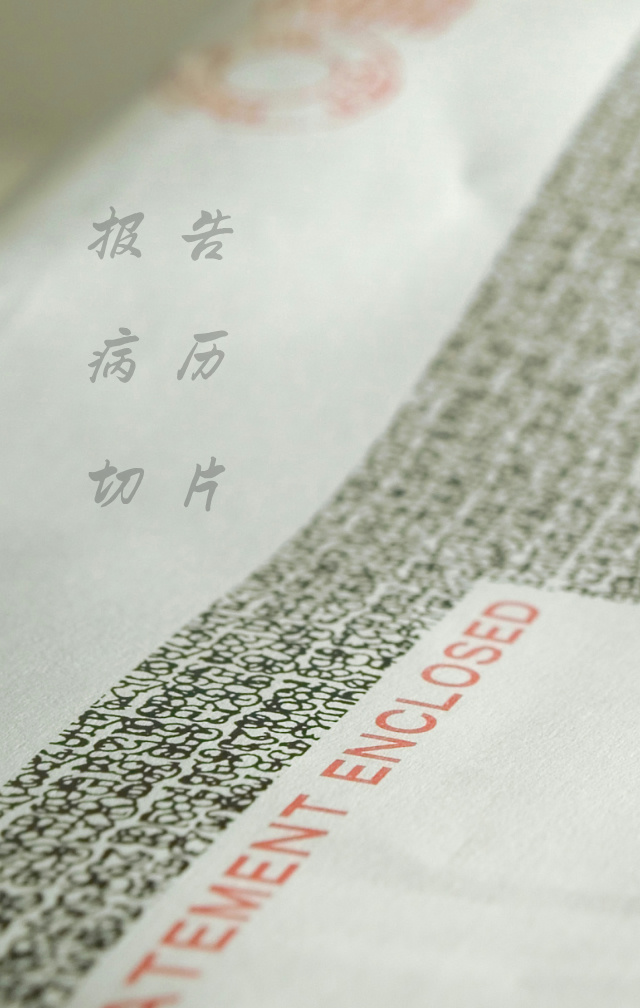 报告
病历
切片
ATEMENT ENCLOSED